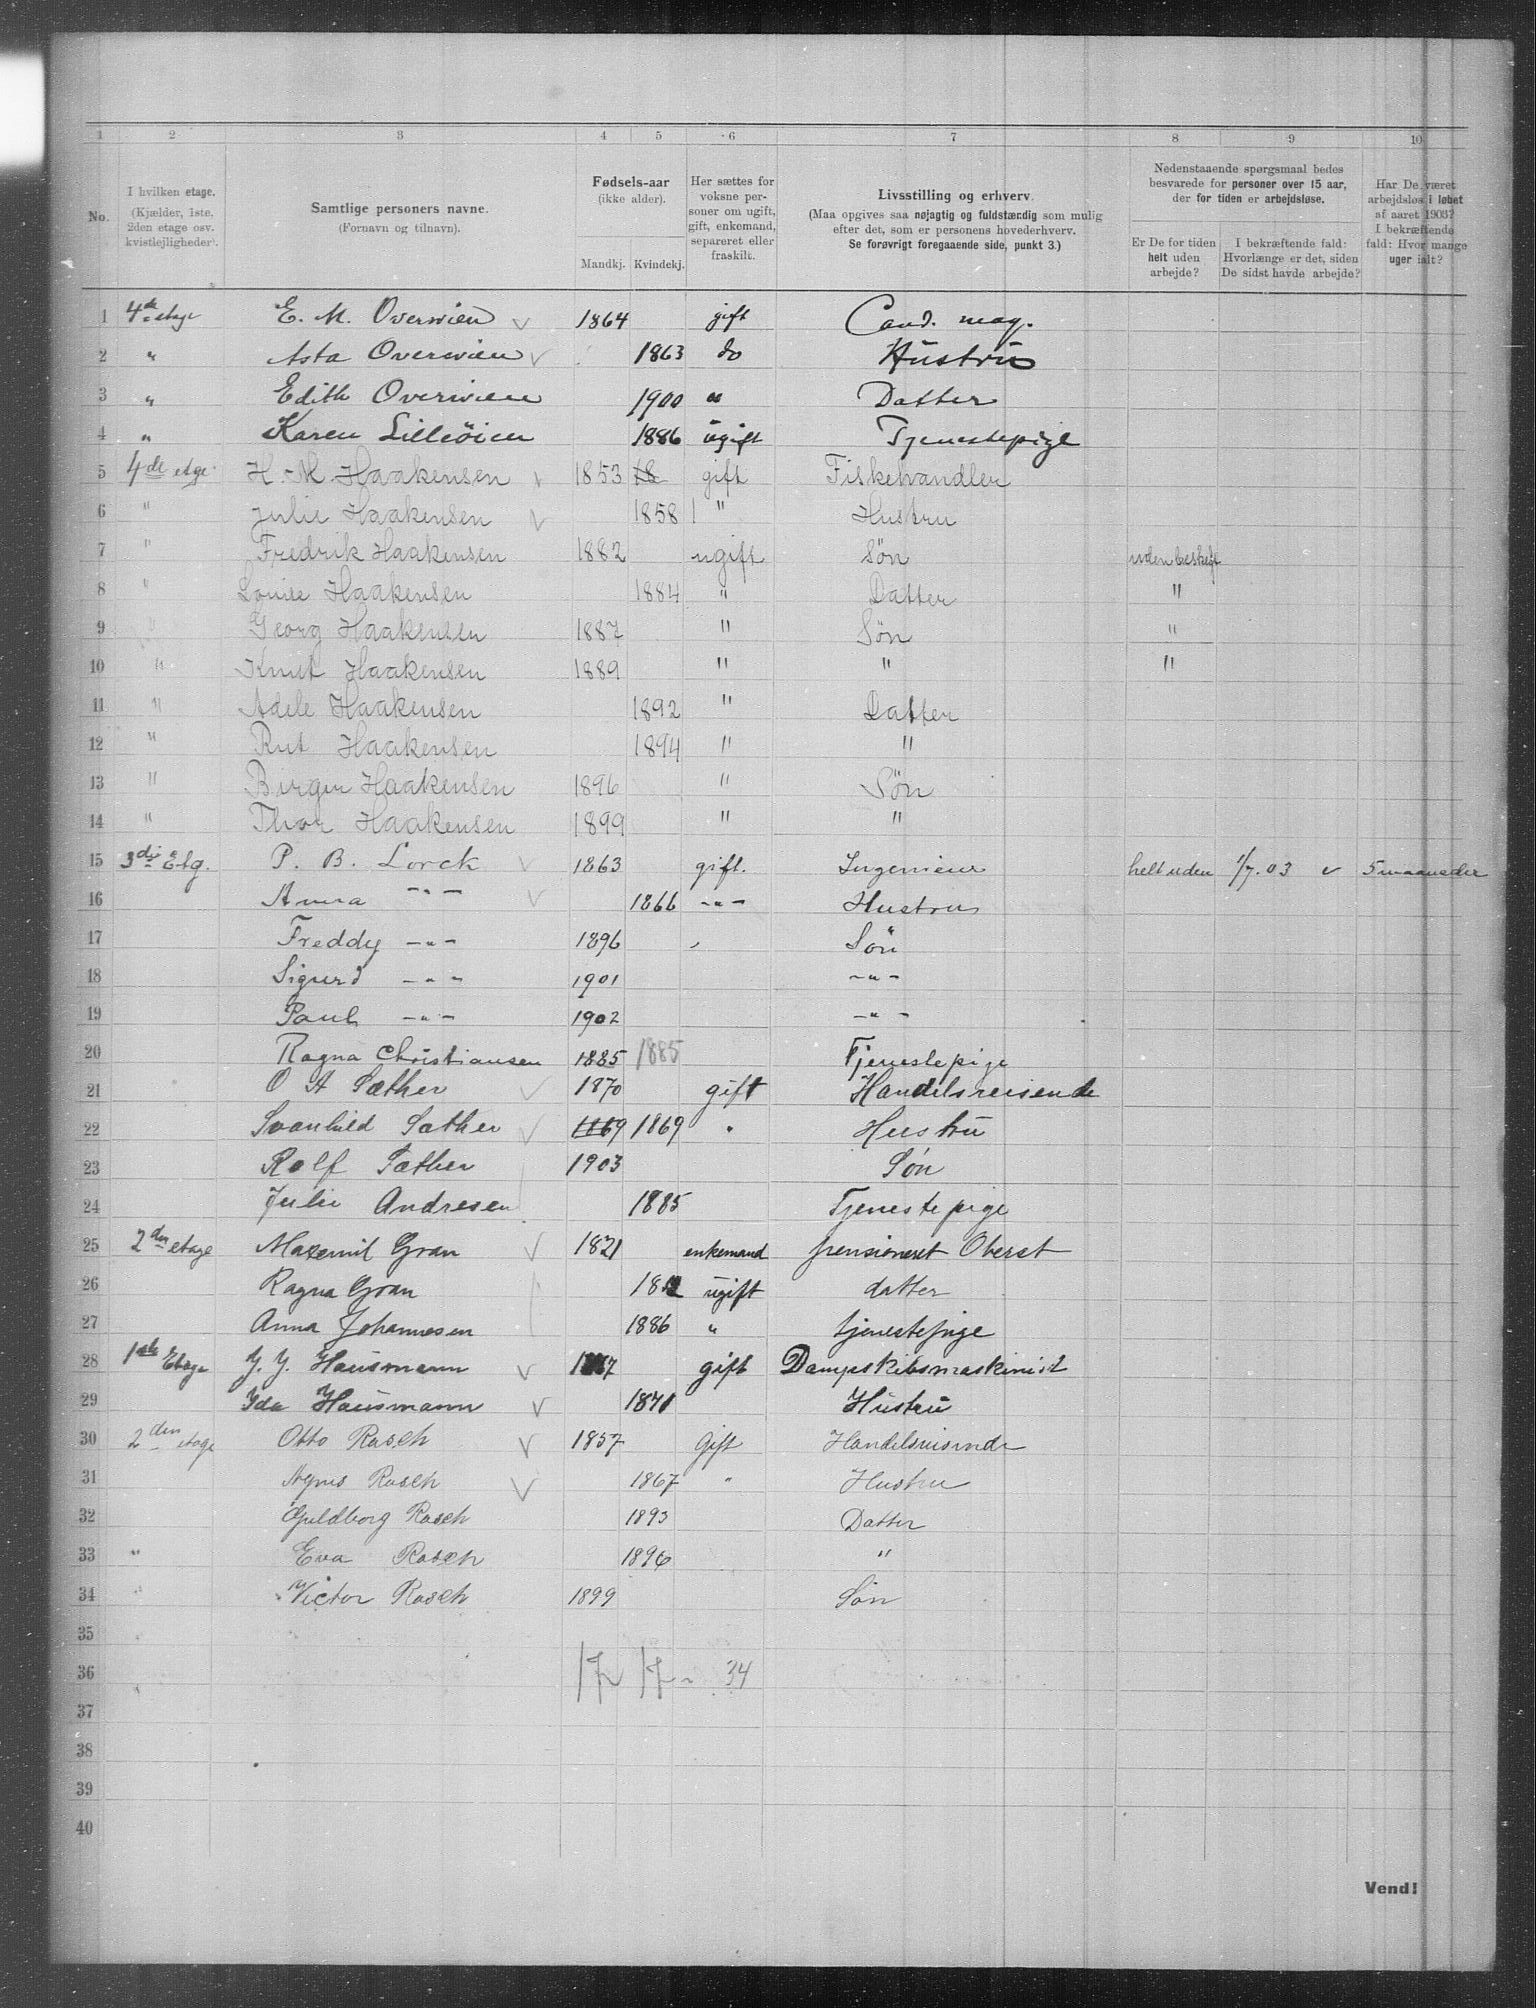 1 2 3 4 5 6 7 8 9 10
No. | I hvilken etage. (Kjælder, 1ste, 2den etage osv. kvistleiligheder). | Samtlige personers navne. (Fornavn og tilnavn). | Fødsels-aar (ikke alder). Mandkj. Kvindekj. | Her sættes for voksne personer om ugift, gift, enkemand, separeret eller fraskilt. | Livsstilling og erhverv. (Maa opgives saa nøjagtig og fuldstændig som mulig efter det, som er personens hovederhverv. Se forøvrigt foregaaende side, punkt 3.) | Nedenstaaende spørgsmaal bedes besvarede for personer over 15 aar, der for tiden er arbejdsløse. Er De for tiden helt uden arbejde? | I bekræftende fald: Hvorlænge er det, siden De sidst havde arbejde? | Har De været arbejdsløs i løbet af aaret 1903? I bekræftende fald: Hvor mange uger ialt?
1 4de etage E. M. Overwien 1864 gift Cand. mag.
2 " Asta Overwien 1863 do Hustru
3 " Edith Overwien 1900 " Datter
4 " Karen Lilleöien 1886 ugift Tjenestepige
5 4de etge H. M. Haakensen 1853 18 gift Fiskehandler
6 " Julie Haakensen 1858 " Hustru
7 " Fredrik Haakensen 1882 ugift Søn uden beskjft
8 " Louise Haakensen 1884 " Datter "
9 Georg Haakensen 1887 " Søn "
10 " Knut Haakensen 1889 " " "
11 " Adele Haakensen 1892 " Datter
12 " Rut Haakensen 1894 " "
13 " Birger Haakensen 1896 " Søn
14 " Thor Haakensen 1899 " "
15 3die Etg. P. B. Lorck 1863 gift. Ingenieur helt uden 1/7. 03 5 maaneder
16 Anna -"- 1866 -"- Hustru
17 Freddy -"- 1896 Søn
18 Sigurd -"- 1901 -"-
19 Paul -"- 1902 -"-
20 Ragna Christiansen 1885 1885 Tjenestepige
21 O A Sæther 1870 gift Handelsreisende
22 Svanhild Sæther 1869 1869 " Hustru
23 Rolf Sæther 1903 Søn
24 Julie Andresen 1885 Tjenestepige
25 2den etage Maxemil Gran 1821 enkemand pensioneret Oberst
26 Ragna Gran ugift datter
27 Anna Johannesen 1886 " tjenestepige
28 1ste Etage Hausmann gift Dampskibsmaskinist
29 Ida Hausmann 1871 Hustru
30 2den etage Otto Rasch 1857 Gift Handelsreisende
31 Agnes Rasch 1867 " Hustru
32 Guldborg Rasch 1893 Datter
33 " Eva Rasch 1896 "
34 " Victor Rasch 1899 Søn
35
36 17 17 - 34
37
38
39
40
Vend!